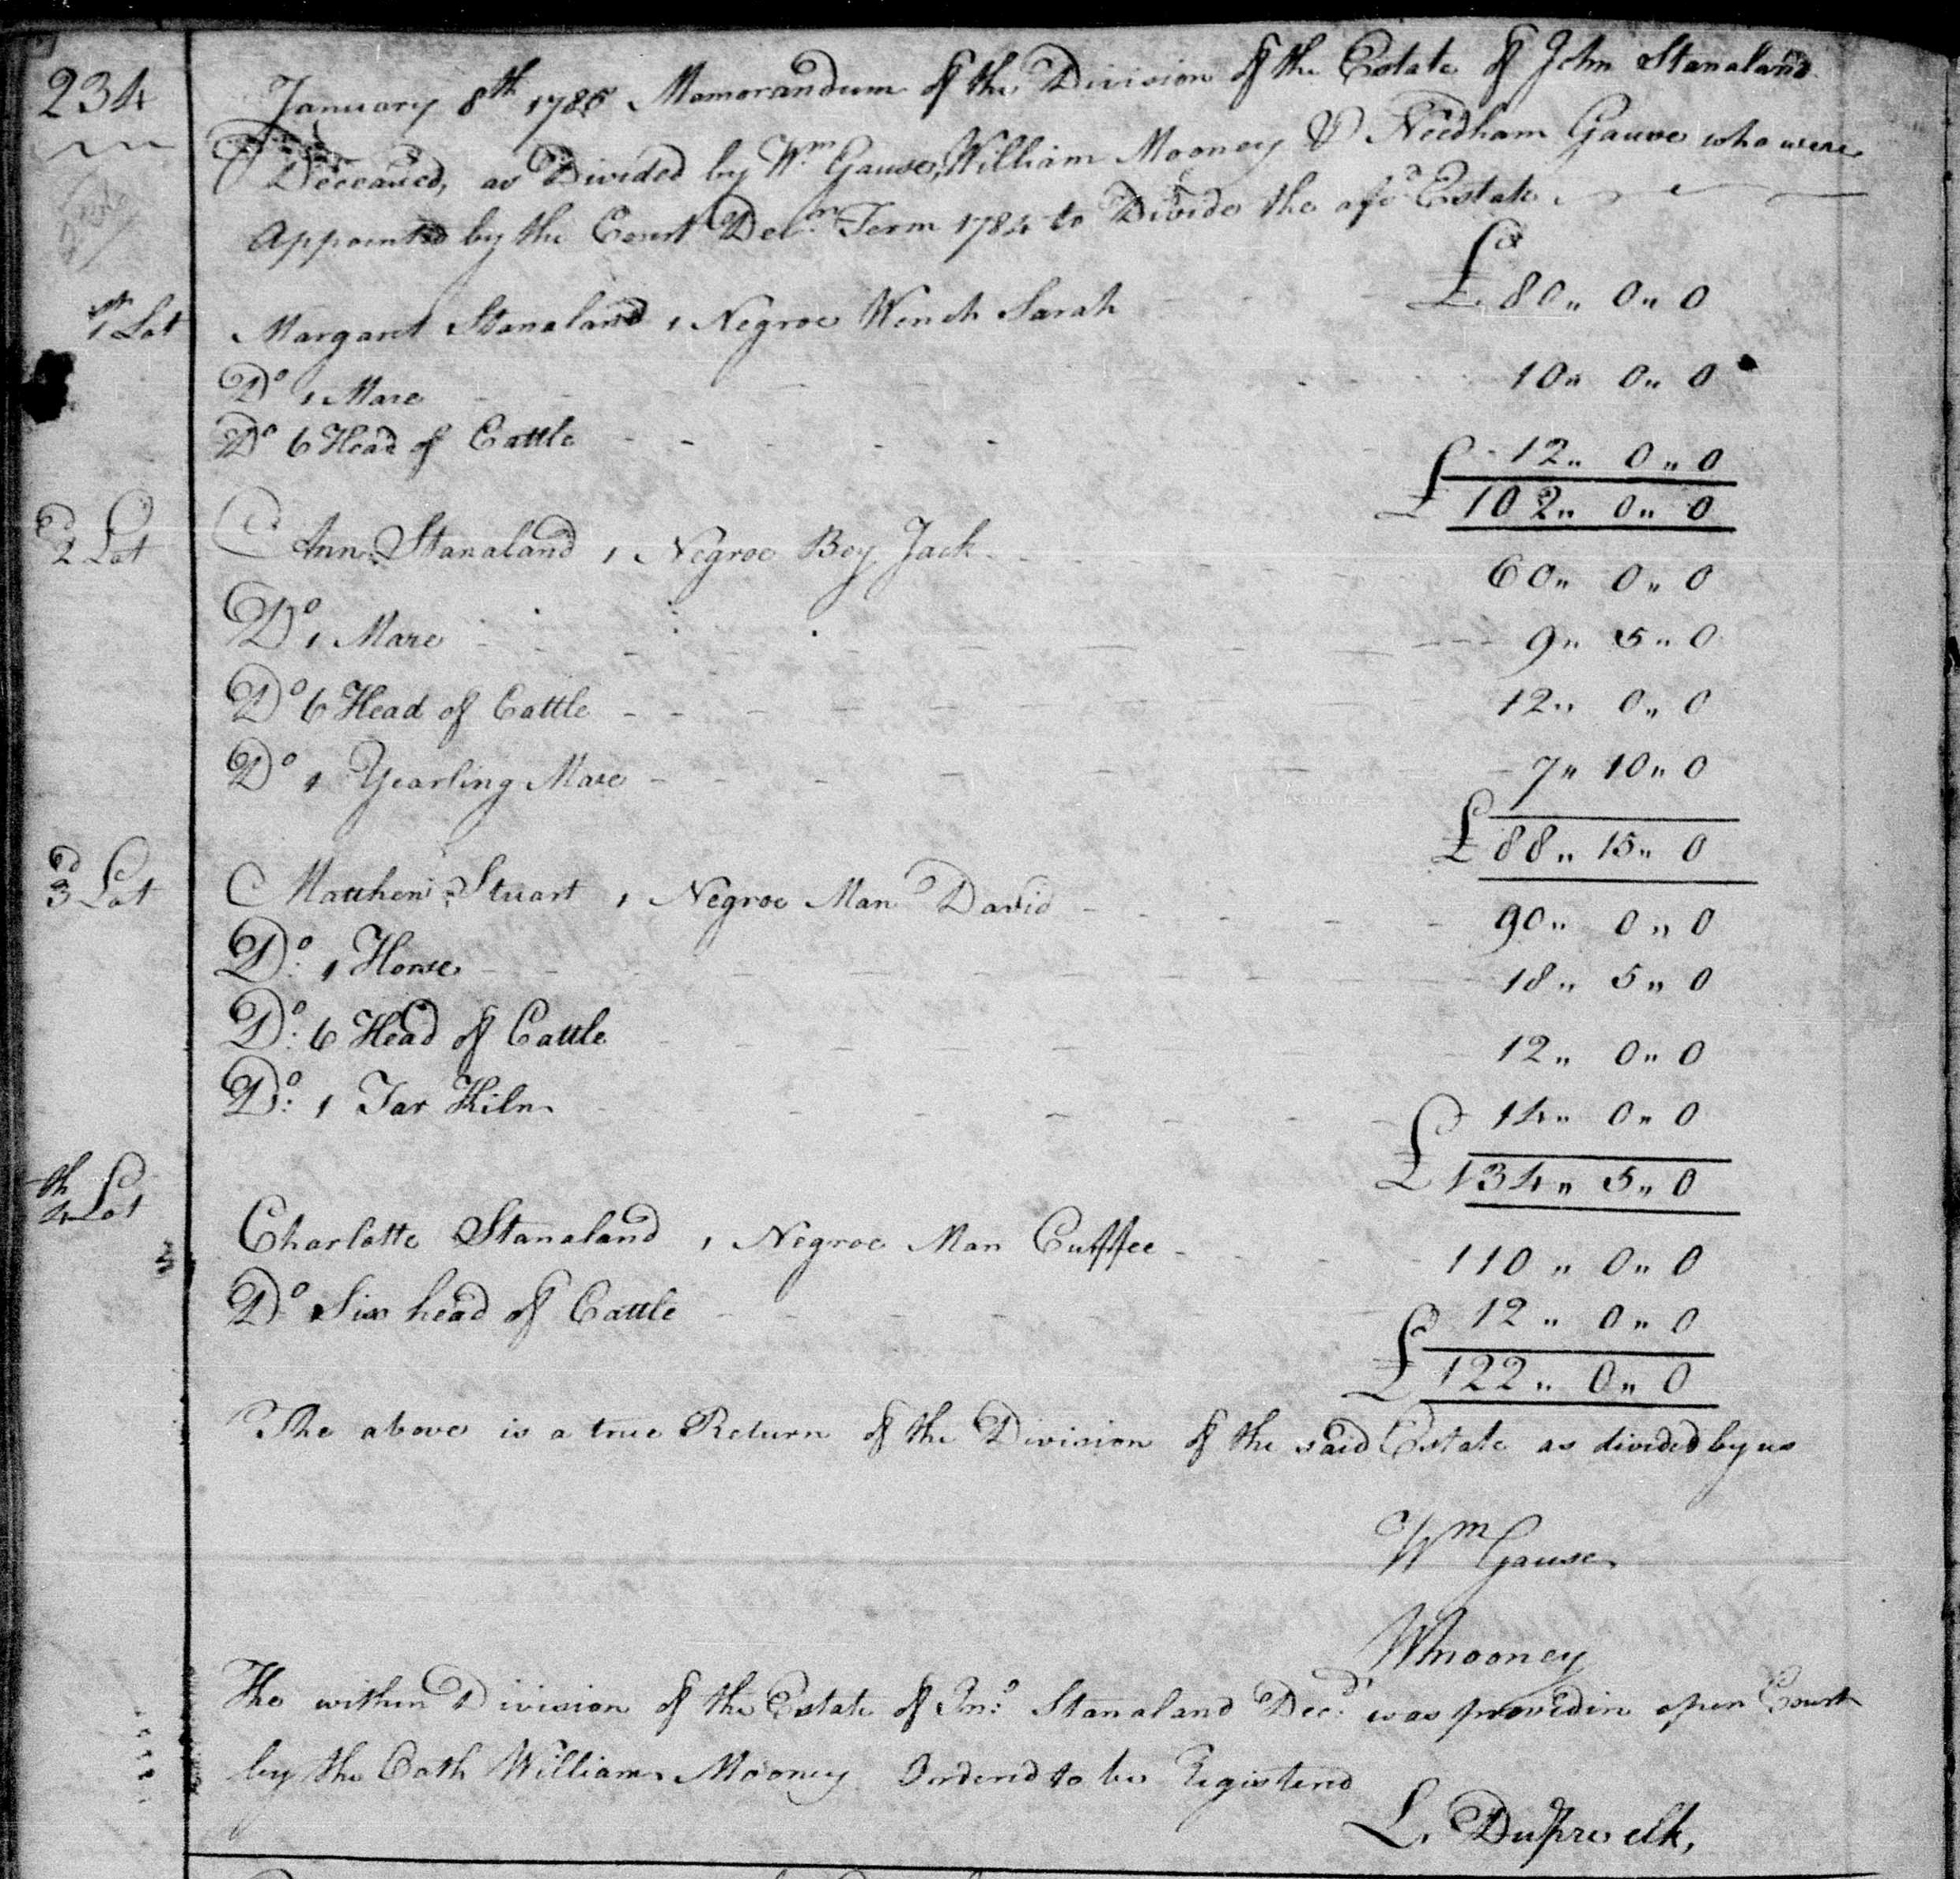 234
January 8th 1785 Memorandum of the Division of the Estate of John Stanaland
Deceased, as Divided by Wm Gause, William Mooney & Needham Gause who were
Appointed by the Court Decr Term 1784 to Divide the afsd Estate
1st Lot Margaret Stanaland 1 Negroe Wench Sarah £80 ,, 0 ,, 0
Do 1 Mare 10 ,, 0 ,, 0
Do 6 Head of Cattle 12 ,, 0 ,, 0
£102 ,, 0 ,, 0
2d Lot Ann Stanaland 1 Negroe Boy Jack 60 ,, 0 ,, 0
Do 1 Mare 9 ,, 5 ,, 0
Do 6 Head of Cattle 12 ,, 0 ,, 0
Do 1 Yearling Mare 7 ,, 10 ,, 0
£88 ,, 15 ,, 0
3d Lot Matthew Stuart 1 Negroe Man David 90 ,, 0 ,, 0
Do 1 Horse 18 ,, 5 ,, 0
Do 6 Head of Cattle 12 ,, 0 ,, 0
Do 1 Tar Kiln 14 ,, 0 ,, 0
£134 ,, 5 ,, 0
4th Lot Charlotte Stanaland 1 Negroe Man Cuffee 110 ,, 0 ,, 0
Do Six head of Cattle 12 ,, 0 ,, 0
£122 ,, 0 ,, 0
The above is a true Return of the Division of the said Estate as divided by us
Wm Gause
Wmooney
The within Division of the Estate of Jno Stanaland Decd was proved in open Court
by the Oath William Mooney Ordered to be Registered
L. Dupre clk,